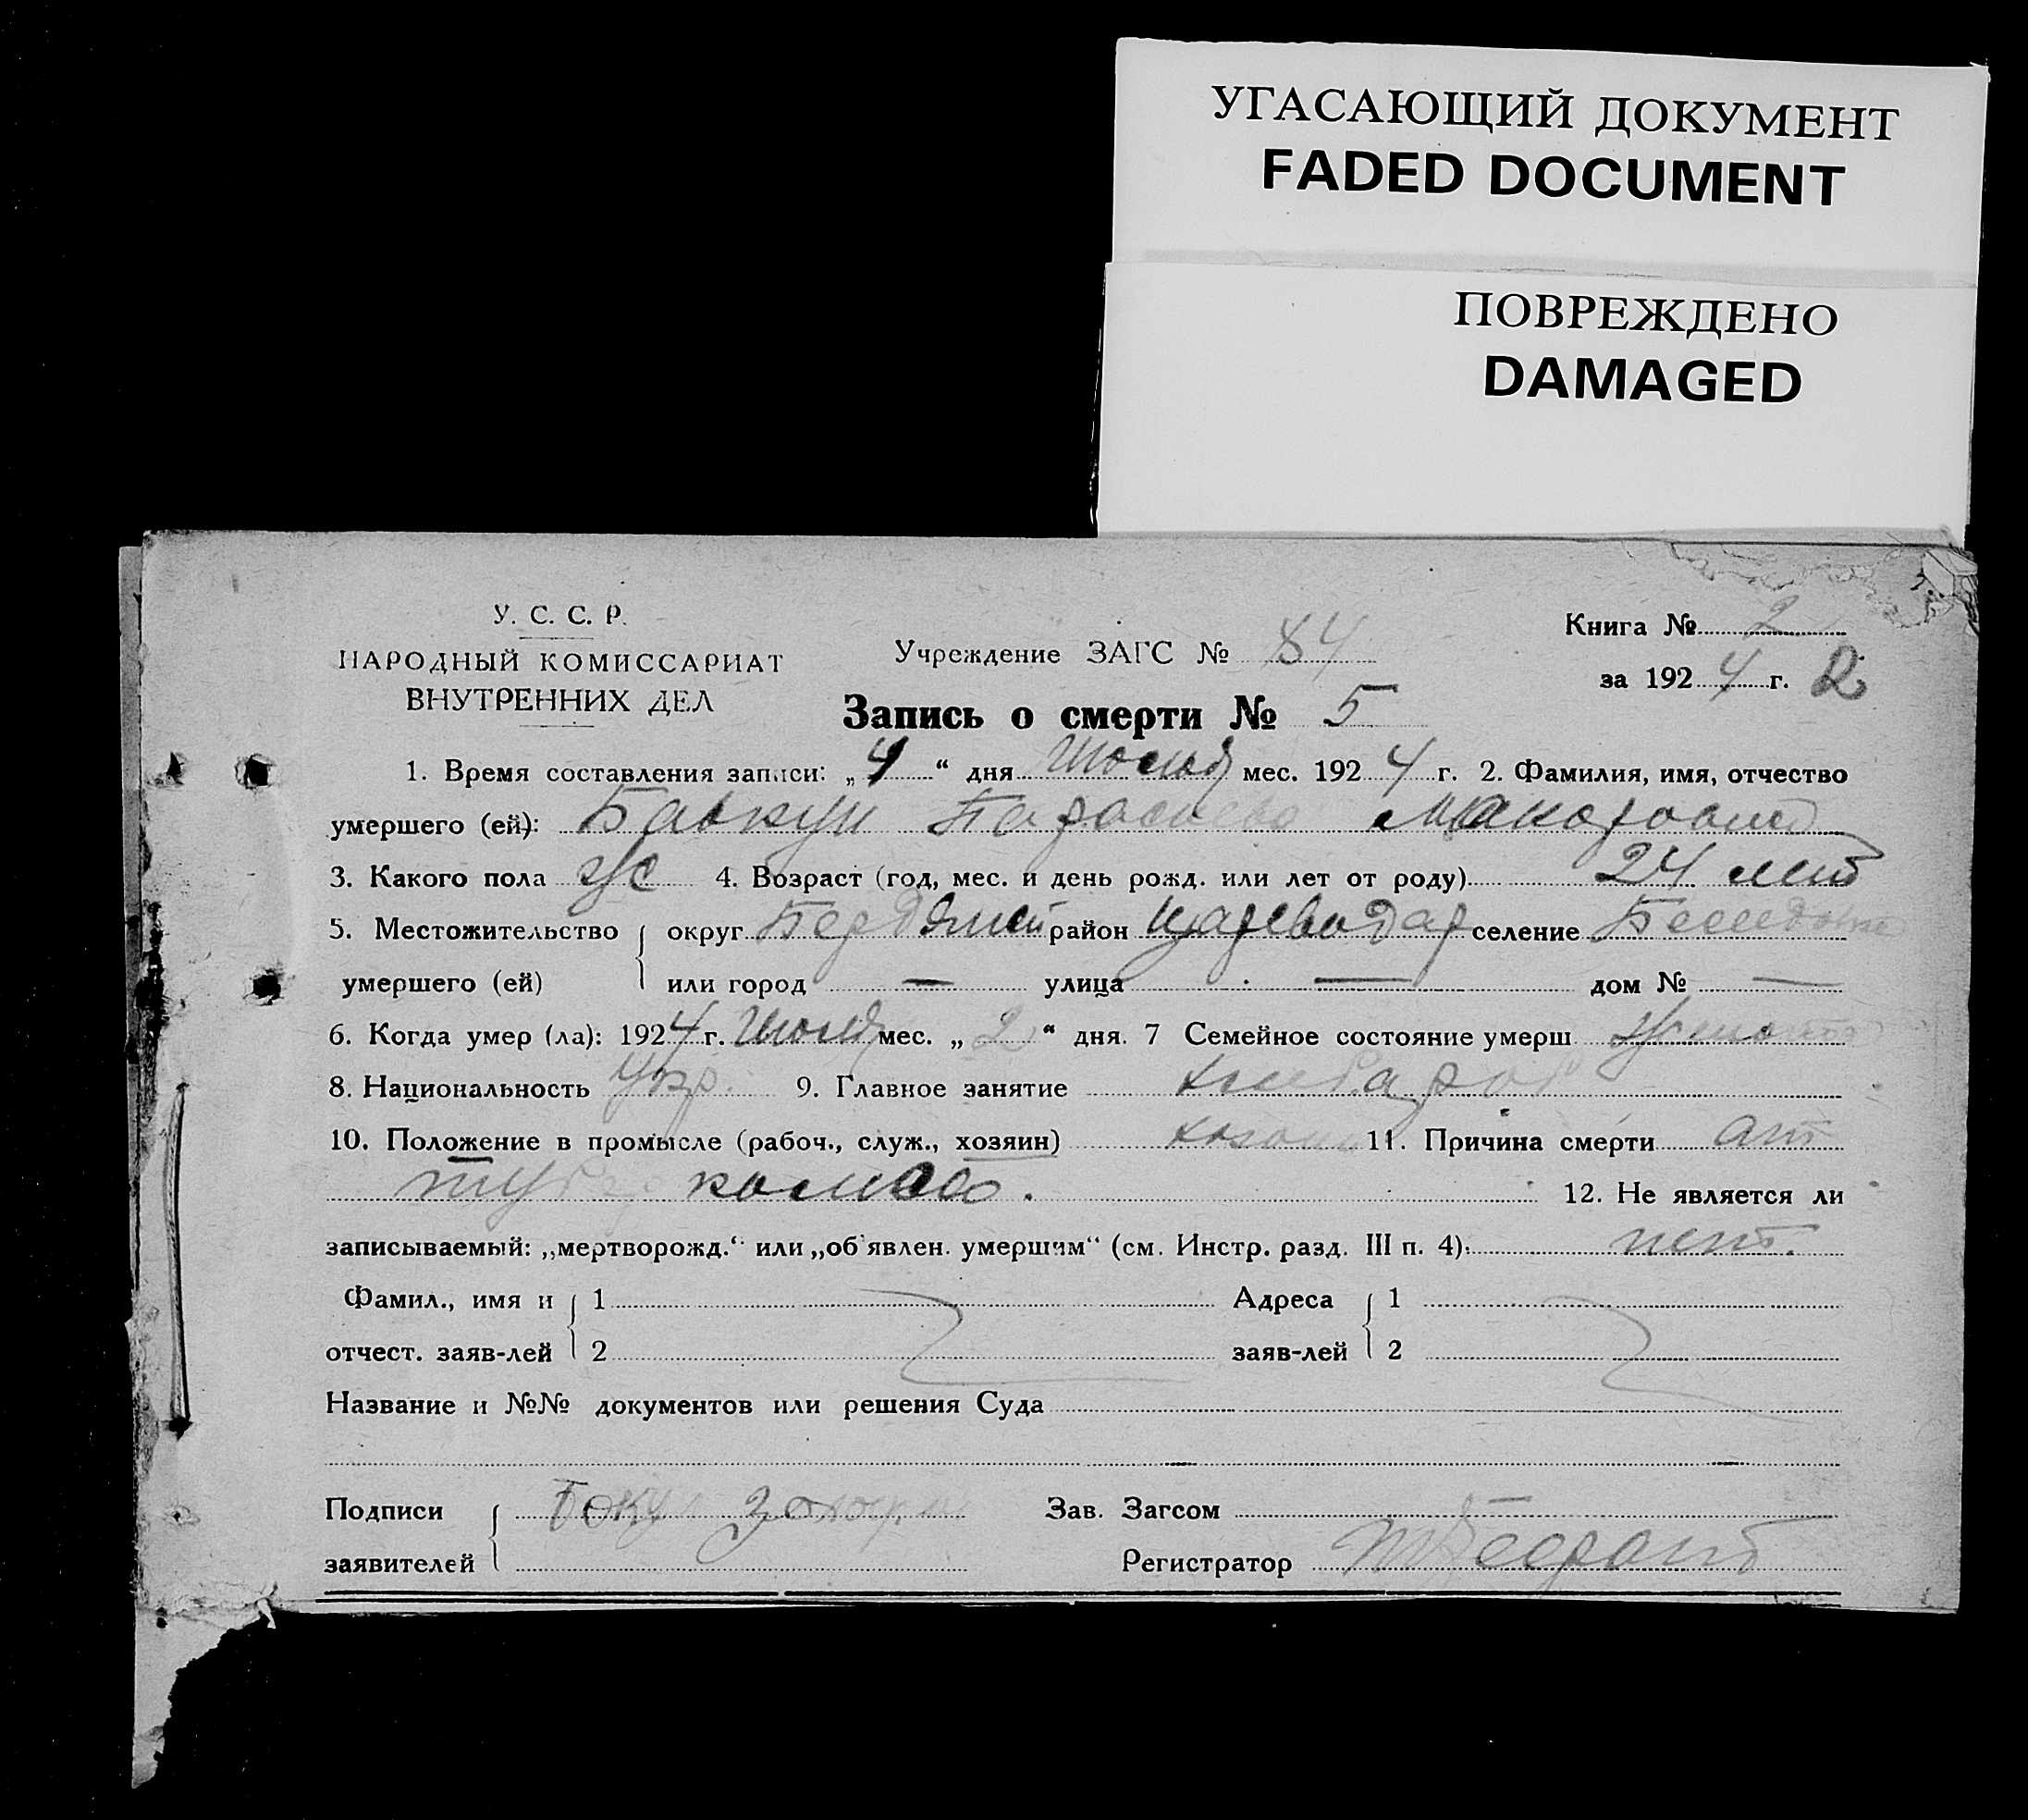 УГАСАЮЩИЙ ДОКУМЕНТ
FADED DOCUMENT
ПОВРЕЖДЕНО
DAMAGED
У. С. С. Р.
НАРОДНЫЙ КОМИССАРИАТ
ВНУТРЕННИХ ДЕЛ
Учреждение ЗАГС № 84
Книга № 2
за 1924 г. 2
Запись о смерти № 5
1. Время составления записи: „4“ дня Июля мес. 1924 г. 2. Фамилия, имя, отчество
умершего (ей): Бавкун
3. Какого пола ж 4. Возраст (год, мес. и день рожд. или лет от роду) 24 лет
5. Местожительство округ Бердянский район Цареводар селение
умершего (ей) или город — улица — дом № —
6. Когда умер (ла): 1924 г. Июля мес. „2“ дня. 7 Семейное состояние умерш.
8. Национальность Укр. 9. Главное занятие хлебороб
10. Положение в промысле (рабоч., служ., хозяин) хозяин 11. Причина смерти от
12. Не является ли
записываемый: „мертворожд.“ или „об'явлен. умершим“ (см. Инстр. разд. III п. 4). нет.
Фамил., имя и 1 Адреса 1
отчест. заяв-лей 2 заяв-лей 2
Название и №№ документов или решения Суда
Подписи Зав. Загсом
заявителей Регистратор